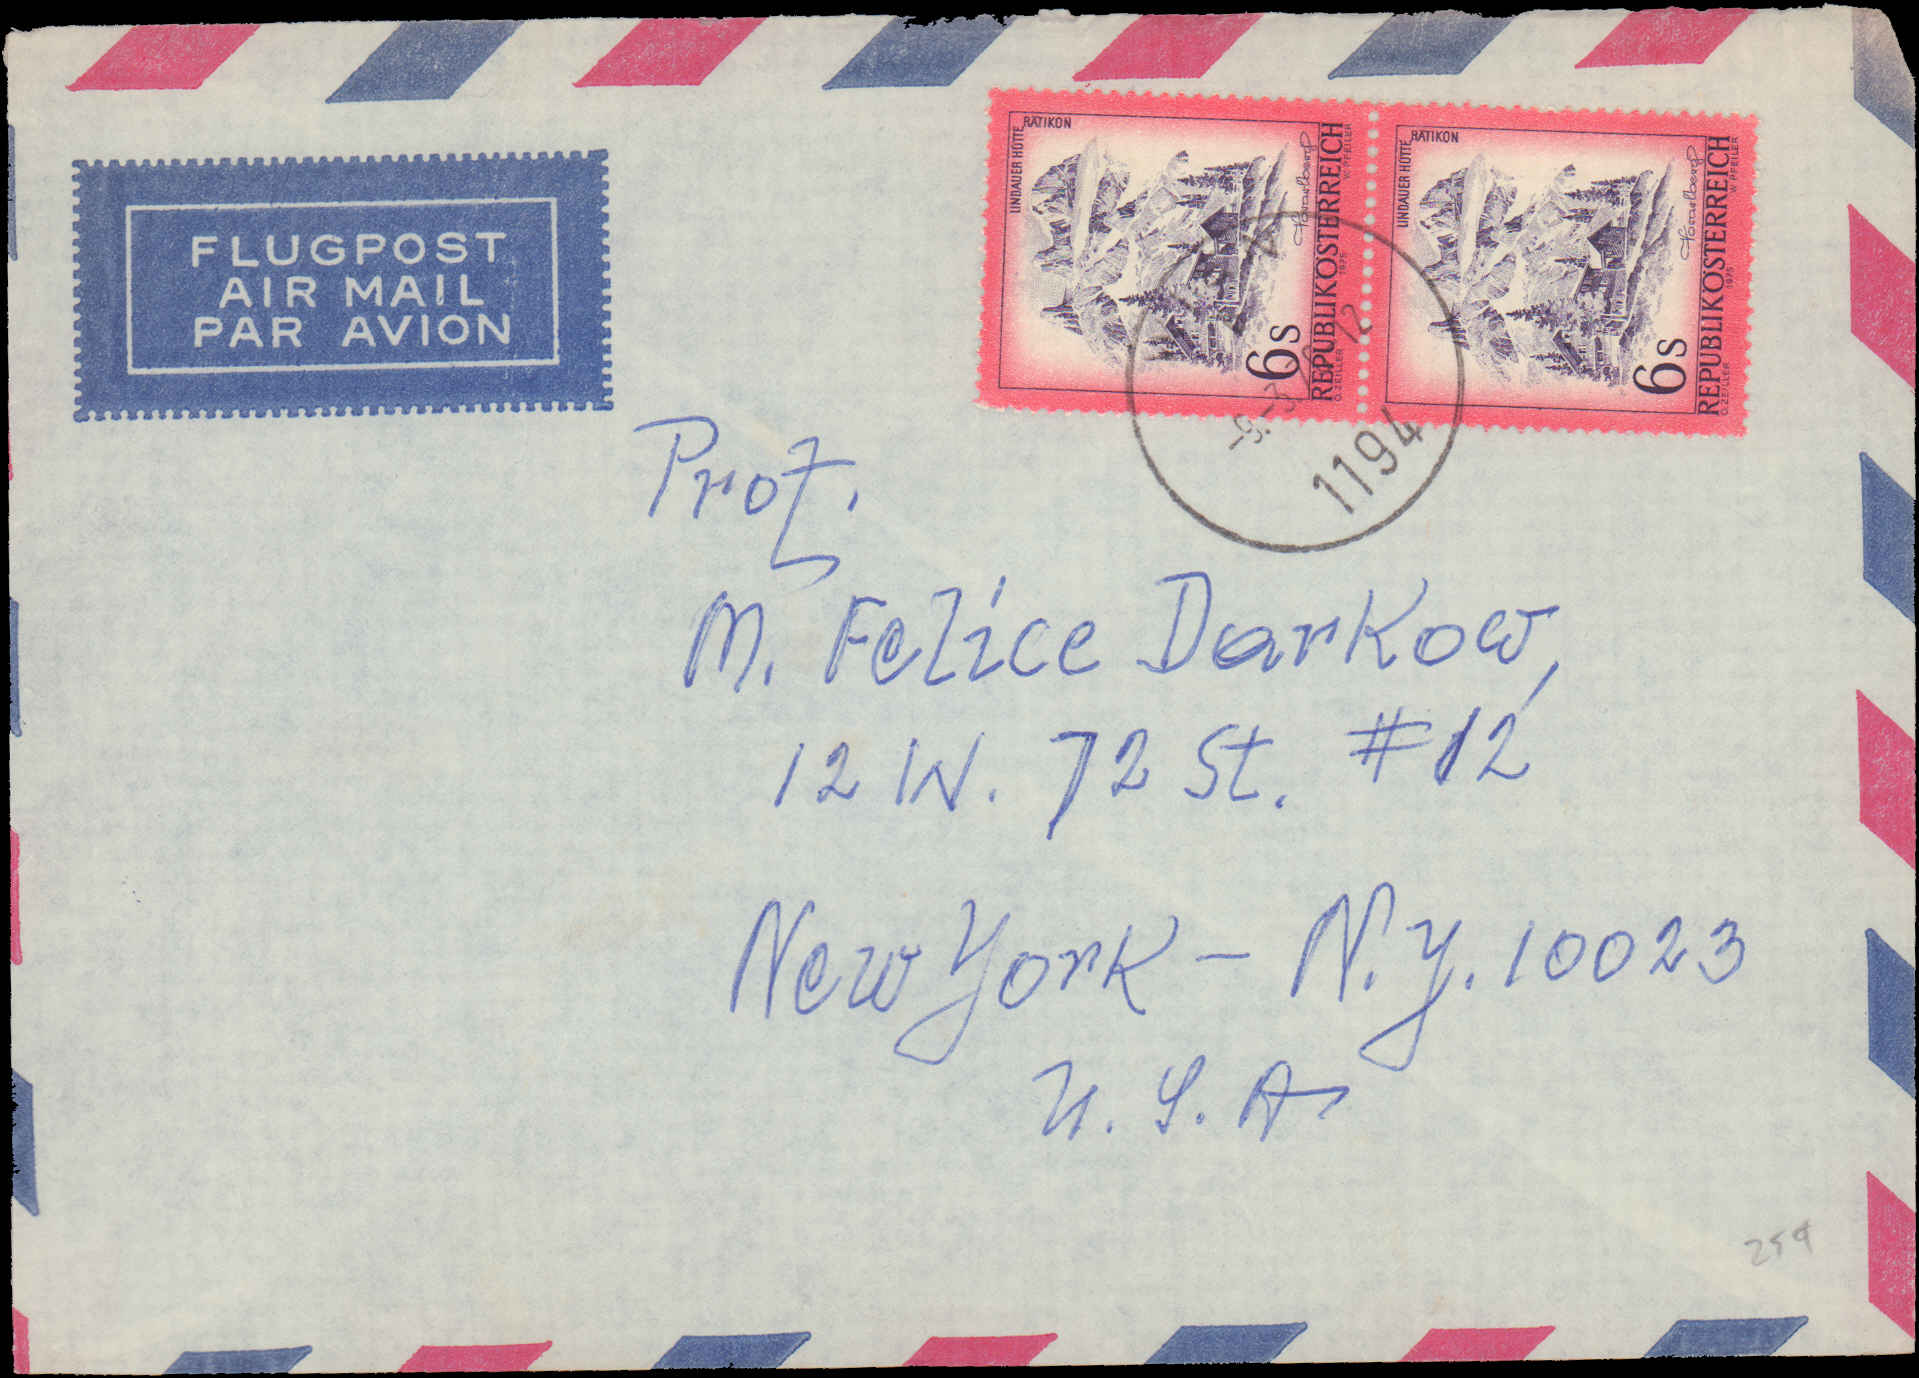 FLUGPOST
AIR MAIL
PAR AVION
LINDAUER HÜTTE
RÄTIKON
6S
REPUBLIK ÖSTERREICH
O. ZEILLER 1975 W. PFEILER
LINDAUER HÜTTE
RÄTIKON
6S
REPUBLIK ÖSTERREICH
O. ZEILLER 1975 W. PFEILER
1194
Prof.
M. Felice Darkow,
12 W. 72 St. #12
New York - N.Y. 10023
U.S.A
259